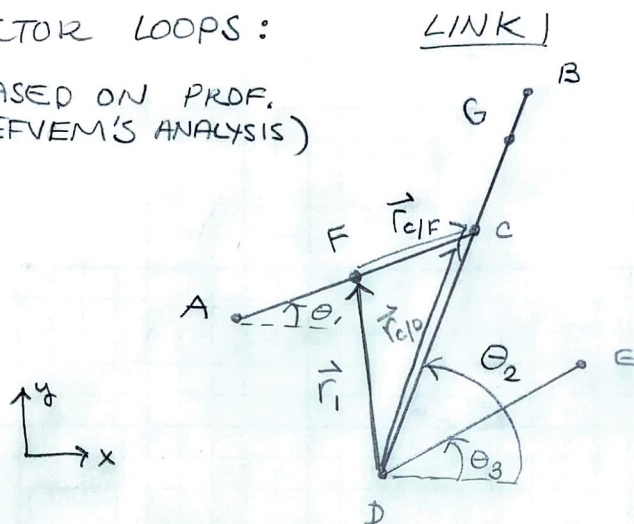 CTOR LOOPS:
LINK 1
ASED ON PROF.
EFVEM'S ANALYSIS)
B
G
r⃗C/F
C
F
A
θ1
r⃗C/D
θ2
E
r⃗1
y
x
θ3
D